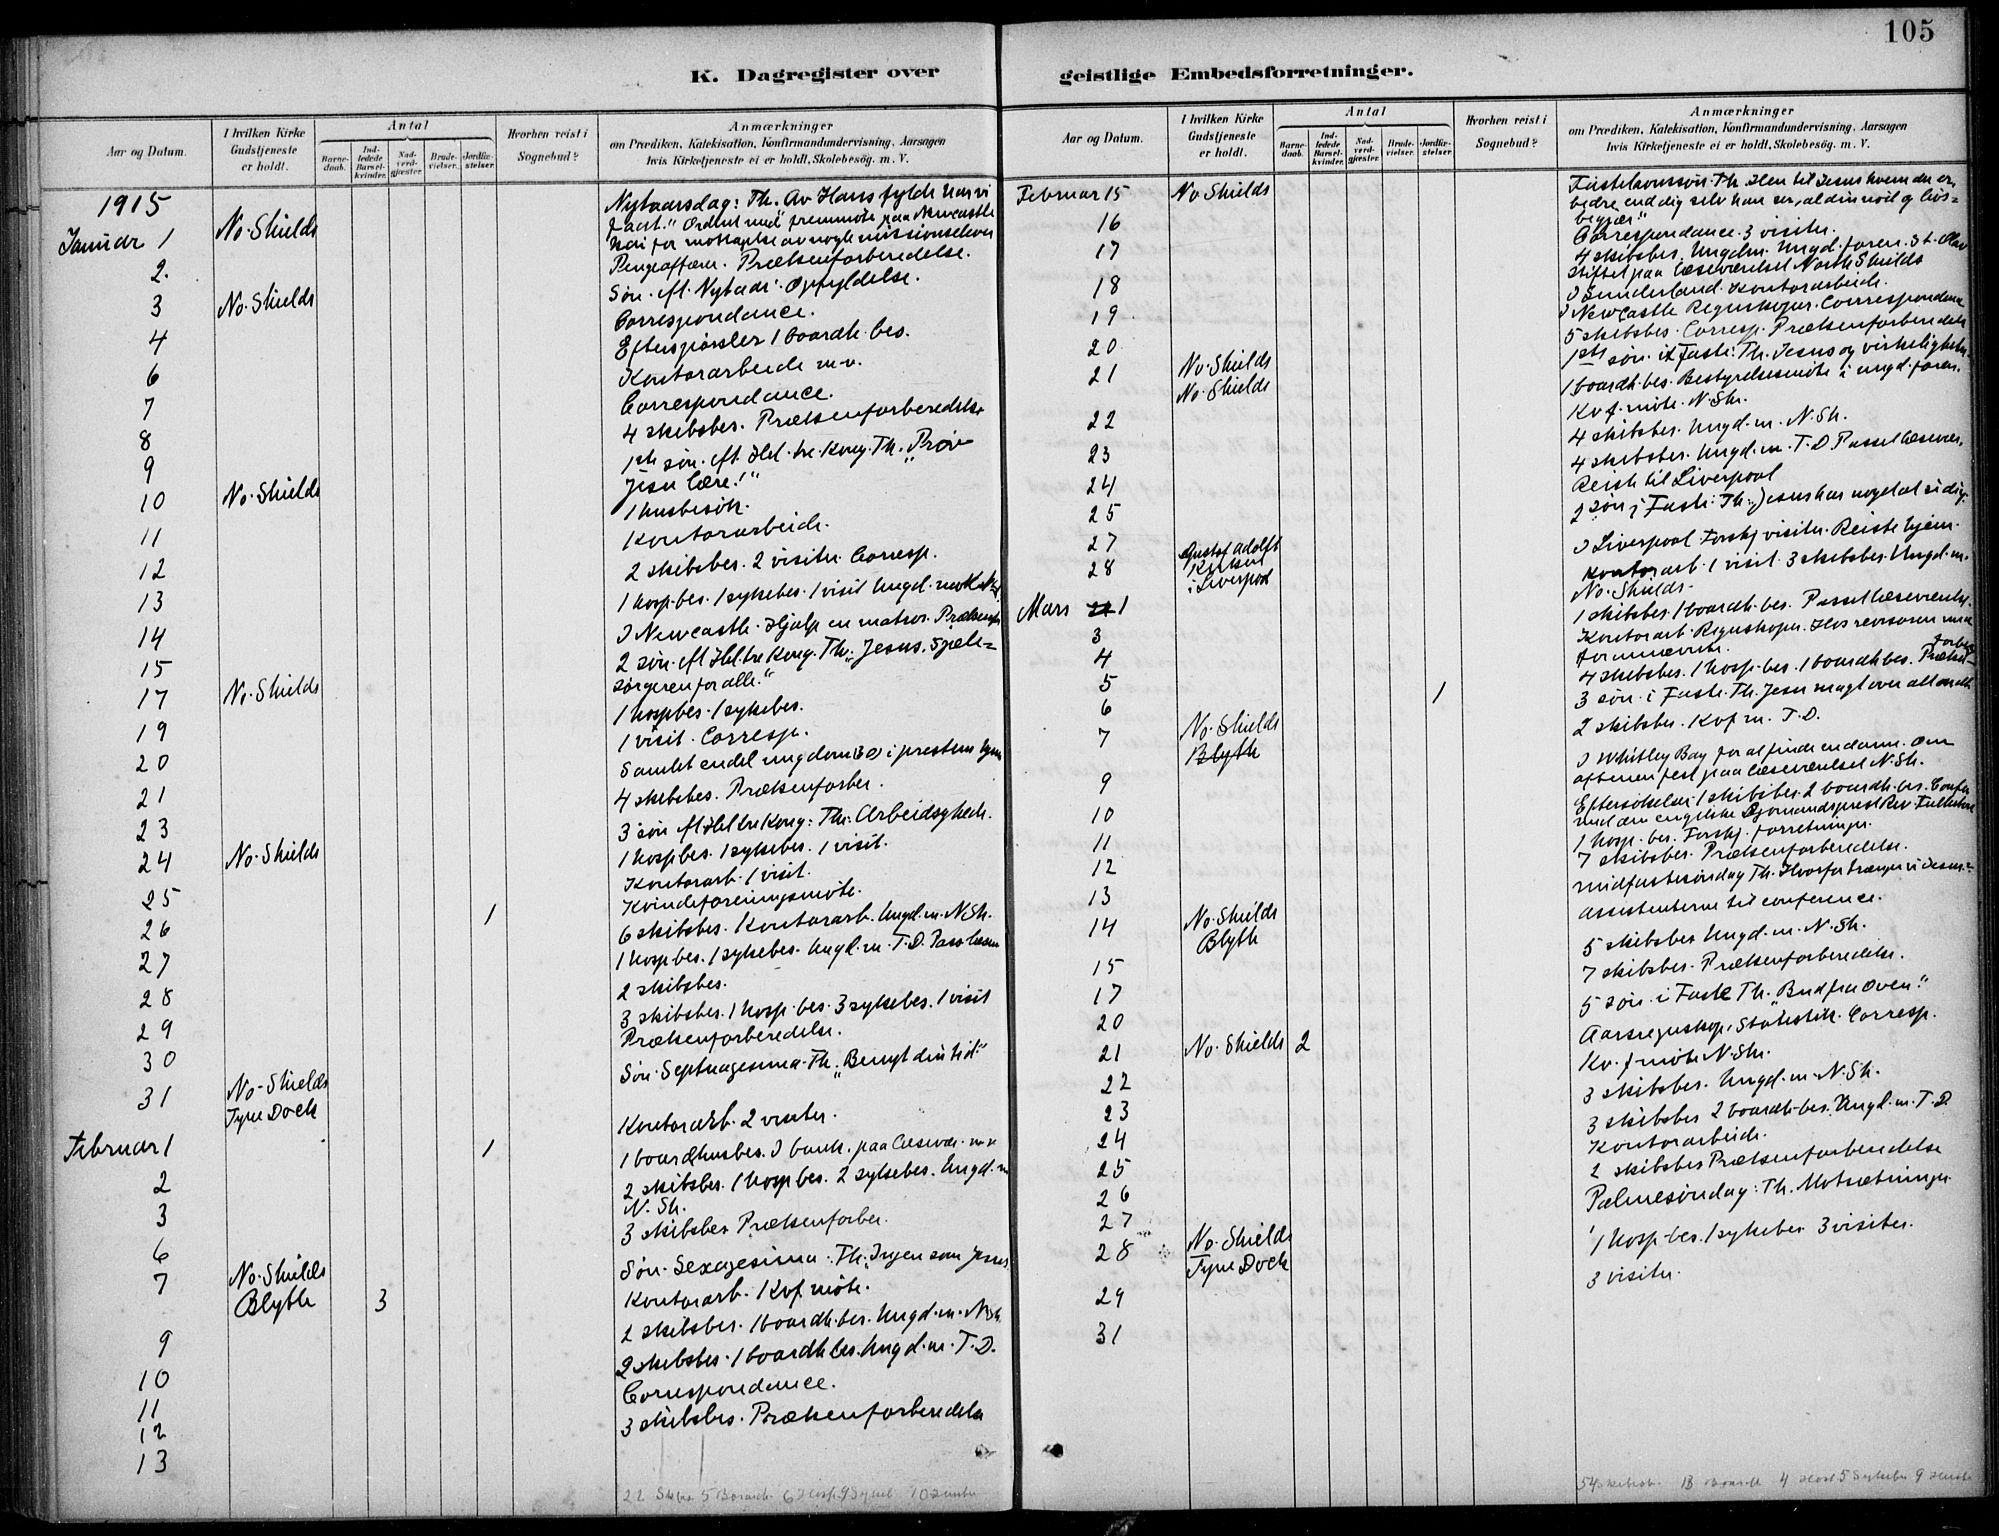 105
K. Dagregister over geistlige Embedsforretninger.
Aar og Datum.
I hvilken Kirke Gudstjeneste er holdt.
Antal
Barne-daab.
Ind-ledede Barsel-kvinder.
Nad-verd-gjæster.
Brude-vielser.
Jordfæ-stelser.
Hvorhen reist i Sognebud?
Anmærkninger
om Prædiken, Katekisation, Konfirmandundervisning, Aarsagen
hvis Kirketjeneste ei er holdt, Skolebesøg. m. V.
1915
Januar 1 No. Shields
2.
3 No. Shields
4
6
7
8
9
10 No. Shields
11
12
13
14
15
17 No. Shields
19
20
21
23
24 No. Shields
25
26 1
27
28
29
30
31 No. Shields
Tyne Dock
Februar 1 1
2
3
6
7 No. Shields
Blyth 3
9
10
11
12
13
Nytaarsdag: Th. Av Hans fylde har vi
faat." Ordnet med fremmøte paa Newcastle
kai for mottagelse av nogle missionselever
Pengeaffærer. Prækenforberedelse.
Søn. eft. Nytaar: Opfyldelse.
Correspondance.
Efterspørsler 1 boardh. bes.
Kontorarbeide m.v.
Correspondance.
4 skibsbes. Prækenforberedelse
1ste søn. eft. Hel. tre Kong. Th. "Prøv
Jesu lære!"
1 husbesøk.
Kontorarbeide.
2 skibsbes. 2 visiter. Corresp.
1 hosp. bes. 1 sykebes. 1 visit Ungd. møte N.Sh.
I Newcastle. Hjalp en matros. Prækenf.
2 søn. eft Hel. tre Kong. Th. "Jesus. Sjæle=
sørgeren for alle."
1 hosp bes. 1 sykebes.
1 visit. Corresp.
Samlet endel ungdom (30) i prestens hjem
4 skibsbes. Prækenforber.
3 søn eft Hel tre Kong: Th: Arbeidsglæde.
1 hosp bes. 1 sykebes. 1 visit.
Kontorarb. 1 visit.
Kvindeforeningsmøte.
6 skibsbes. Kontorarb. Ungd. m. N.Sh.
1 hosp bes. 1 sykebes. Ungd. m. T.D. Pass læsev.
2 skibsbes.
3 skibsbes. 1 hosp. bes. 3 sykebes. 1 visit
Prækenforberedelse.
Søn. Septuagesima. Th. "Benyt din tid."
Kontorarb. 2 visiter.
1 boardhusbes. I bank. paa Læsevær. m.v
2 skibsbes. 1 hosp bes. 2 sykebes. Ungd. m
N. Sh.
3 skibsbes Prækenforber.
Søn. Sexagesima. Th: Ingen som Jesus
Kontorarb. Kvf. møte.
2 skibsbes. 1 boardh. bes. Ungd. m. N.Sh.
2 skibsbes. 1 boardh. bes. Ungd. m. T.D.
Correspondance.
3 skibsbes. Prækenforberedelse
Aar og Datum.
I hvilken Kirke Gudstjeneste er holdt.
Antal
Barne-daab.
Ind-ledede Barsel-kvinder.
Nad-verd-gjæster.
Brude-vielser.
Jordfæ-stelser.
Hvorhen reist i Sognebud?
Anmærkninger
om Prædiken, Katekisation, Konfirmandundervisning, Aarsagen
hvis Kirketjeneste ei er holdt, Skolebesøg. m. V.
Februar 15 No. Shields
16
17
18
19
20
21 No. Shields
No. Shields
22
23
24
25
27
28 Gustaf Adolfs
Kirken
i Liverpool
Mars 1
3
4
5 1
6
7 No. Shields
Blyth
9
10
11
12
13
14 No. Shields
Blyth
15
17
20
21 No. Shields 2
22
23
24
25
26
27
28 No. Shields
Tyne Dock
29
31
Fastelavnssøn. Th. Hen til Jesus hvem du er,
bedre end dig selv han ser, al din nød og livs=
begjær."
Correspondance. 3 visiter.
4 skibsbes. Ungdm. Ungd. foren. St. Olav
stiftet paa læseværelset North Shields
I Sunderland. Kontorarbeide.
I Newcastle Regnskaper. Correspondance
5 skibsbes. Corresp. Prækenforberedelse
1ste søn. i Faste: Th. Jesus og virkeligheten.
1 boardh. bes. Bestyrelsesmøte i ungd. foren.
Kv f. møte. N. Sh.
4 skibsbes. Ungd. m. N. Sh.
4 skibsbes. Ungd. m. T.D. Passet læsevær.
Reiste til Liverpool
2 søn i Faste: Th. Jesus har noget at si dig.
I Liverpool Forskj visiter. Reiste hjem.
Kontorarb. 1 visit. 3 skibsbes. Ungd. m.
No. Shields.
1 skibsbes. 1 boardh. bes. Passet læseværelse.
Kontorarb. Regnskaper. Hos revisoren med
4 skibsbes. 1 hosp. bes. 1 boardh bes. Præken-
forber.
3 søn. i Faste. Th. Jesu magt over alt ondt
2 skibsbes. Kvf m. T.D.
I Whitley Bay for at finde en dame. Om
aftenen fest paa læseværelset N. Sh.
Eftersøkelser. 1 skibsbes. 2 boardh. bes. Confer.
med den engelske Sjømandsprest Rev.
1 hosp. bes. Forskj. forretninger.
7 skibsbes. Prækenforberedelse.
Midfastesøndag Th. Hvorfor trænger vi Jesus?
Assistenterne til conference.
5 skibsbes Ungd. m. N. Sh.
7 skibsbes. Prækenforberedelse.
5 søn. i Faste Th. "Bud fra oven."
Aarsregnskap, Statistik. Corresp.
Kv. f møte N. Sh.
3 skibsbes. Ungd. m. N. Sh.
3 skibsbes 2 boardh. bes. Ungd. m. T.D.
Kontorarbeide.
2 skibsbes Prækenforberedelse
Palmesøndag: Th. Motsætninger
1 hosp. bes. 1 sykebes 3 visiter.
3 visiter.